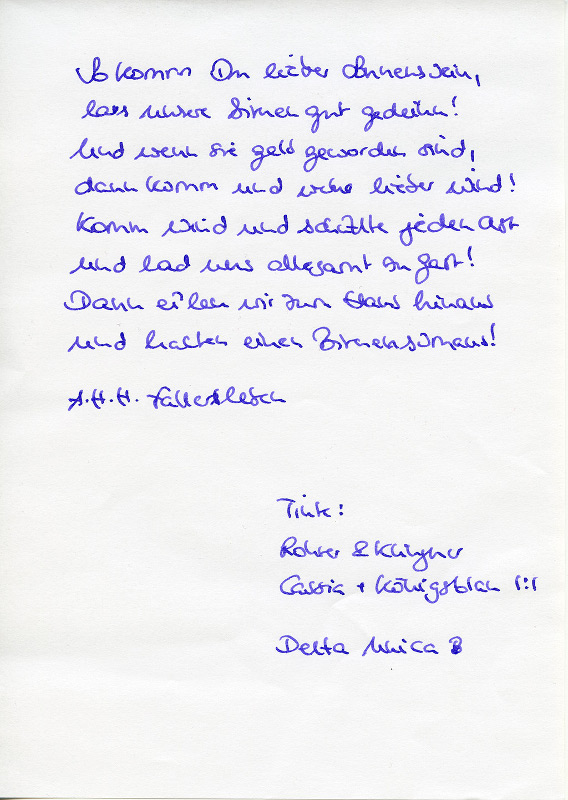 So komm Du lieber Sonnenschein,
lass unsere Birnen gut gedeihn!
Und wenn sie gelb geworden sind,
dann komm und wehe lieber Wind!
Komm Wind und schüttle jeden Ast
und lad uns allesamt zu Gast!
Dann eilen wir zum Haus hinaus
und halten einen Birnenschmaus!
A.H.H. Fallersleben
Tinte:
Rohrer & Klingner
Cassia + Königsblau 1:1
Delta Unica B